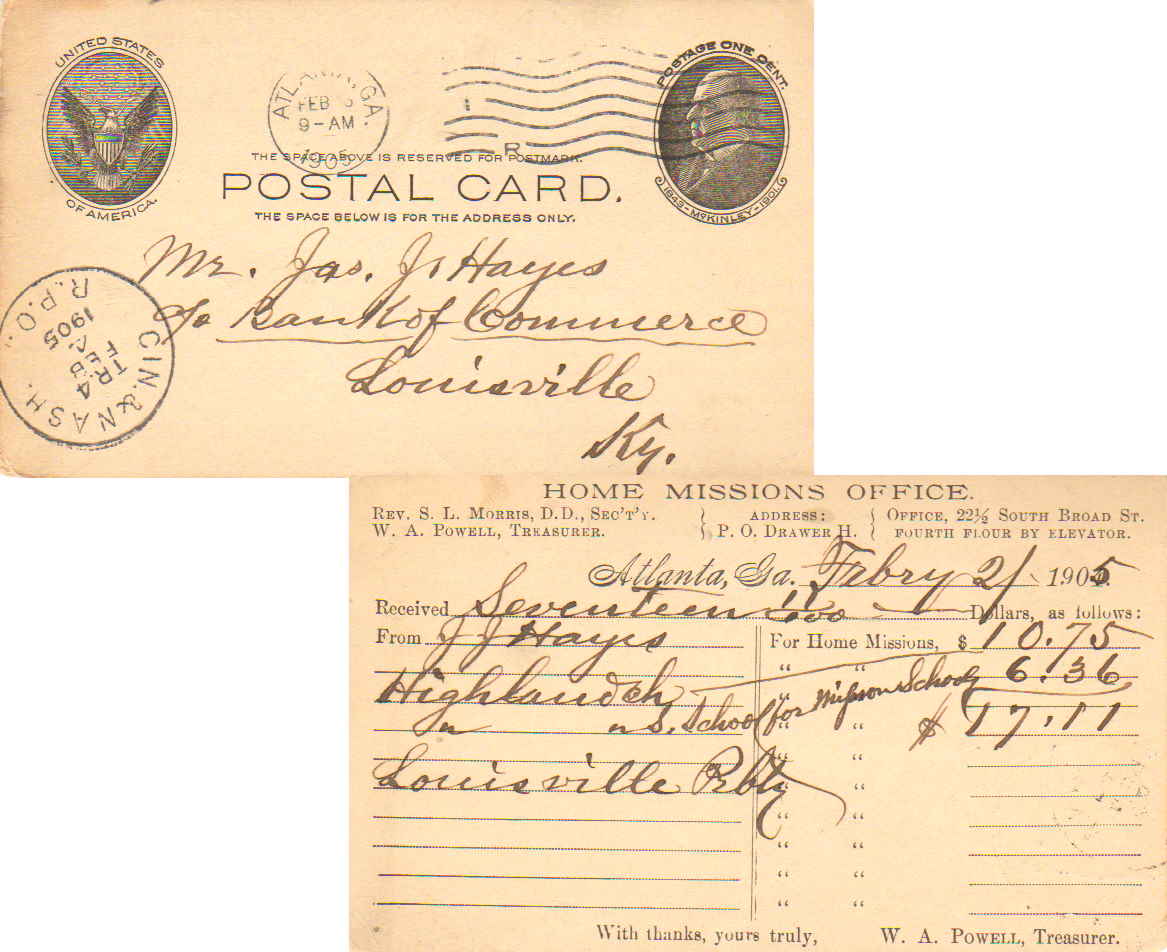 UNITED STATES
OF AMERICA.
ATLANTA, GA.
FEB
9-AM
1905
R
POSTAGE ONE CENT.
1843-McKINLEY-1901.
THE SPACE ABOVE IS RESERVED FOR POSTMARK.
POSTAL CARD.
THE SPACE BELOW IS FOR THE ADDRESS ONLY.
Mr. Jas. J. Hayes
Bank of Commerce
Louisville
Ky.
CIN. & NASH.
R.P.O.
TR.4
FEB
1905
HOME MISSIONS OFFICE.
REV. S. L. MORRIS, D.D., SEC'T'Y. ADDRESS: OFFICE, 22½ SOUTH BROAD ST.
W. A. POWELL, TREASURER. P. O. DRAWER H. FOURTH FLOUR BY ELEVATOR.
Atlanta, Ga. Febry 2/ 1905
Received Seventeen 11/100 Dollars, as follows:
From J J Hayes For Home Missions, $ 10.75
“ “ 6.36
Highland ch
“ “ S. School for Mission School “ “ $ 17.11
“ “
Louisville Prbty “ “
“ “
“ “
“ “
“ “
With thanks, yours truly, W. A. POWELL, Treasurer.